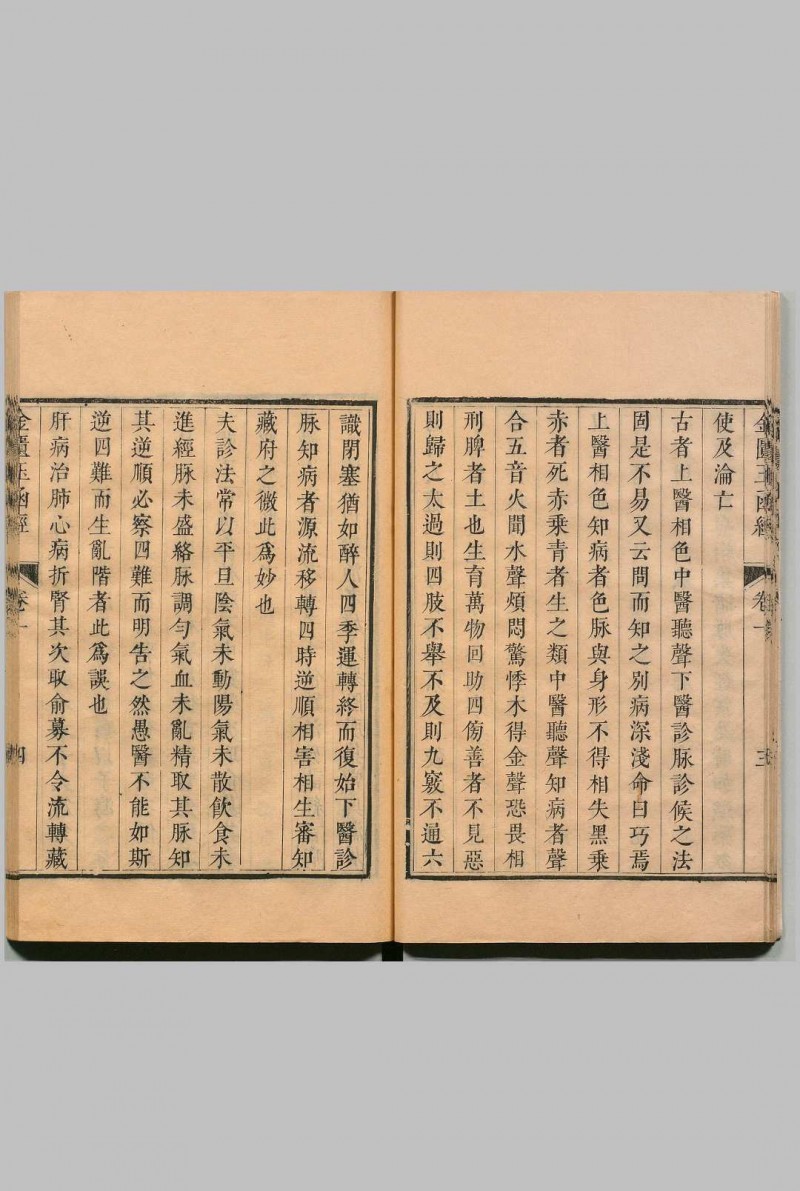 金匱玉函經 卷一 三
使及淪亡
古者上醫相色中醫聽聲下醫診脉診候之法
固是不易又云問而知之別病深淺命曰巧焉
上醫相色知病者色脉與身形不得相失黑乗
赤者死赤乗青者生之類中醫聽聲知病者聲
合五音火聞水聲煩悶驚悸木得金聲恐畏相
刑脾者土也生育萬物回助四傍善者不見惡
則歸之太過則四肢不舉不及則九竅不通六
識閉塞猶如醉人四季運轉終而復始下醫診
脉知病者源流移轉四時逆順相害相生審知
藏府之微此爲妙也
夫診法常以平旦陰氣未動陽氣未散飲食未
進經脉未盛絡脉調勻氣血未亂精取其脉知
其逆順必察四難而明告之然愚醫不能如斯
逆四難而生亂階者此爲誤也
肝病治肺心病折腎其次取俞募不令流轉藏
金匱玉函經 卷一 四